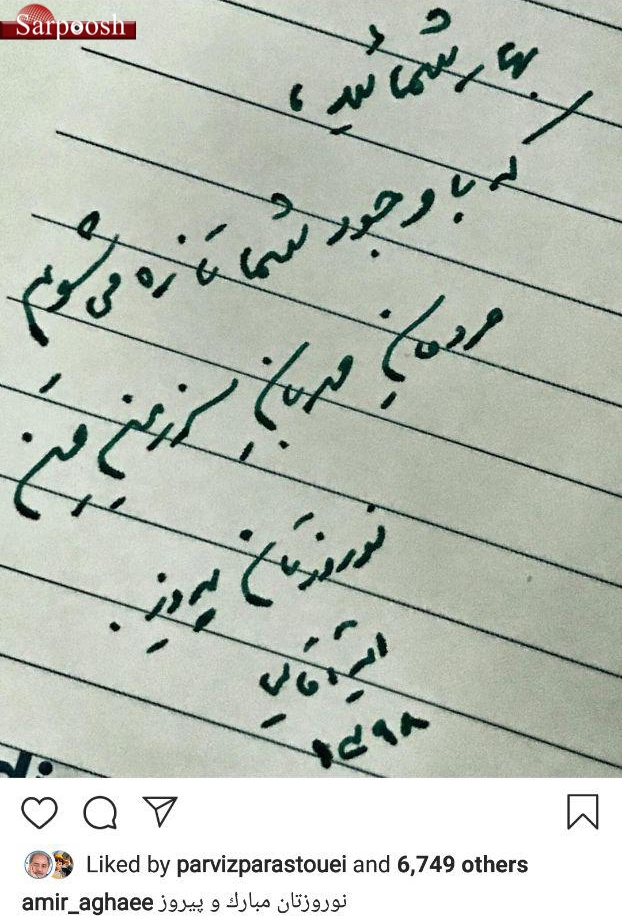 Sarpoosh
بهار شمائید،
که با وجود شما تازه می شویم
مردمانِ مهربانِ سرزمینِ من
نوروزتان پیروز.
امیر آقایی
۱۳۹۸
Liked by parvizparastouei and 6,749 others
amir_aghaee نوروزتان مبارك و پیروز